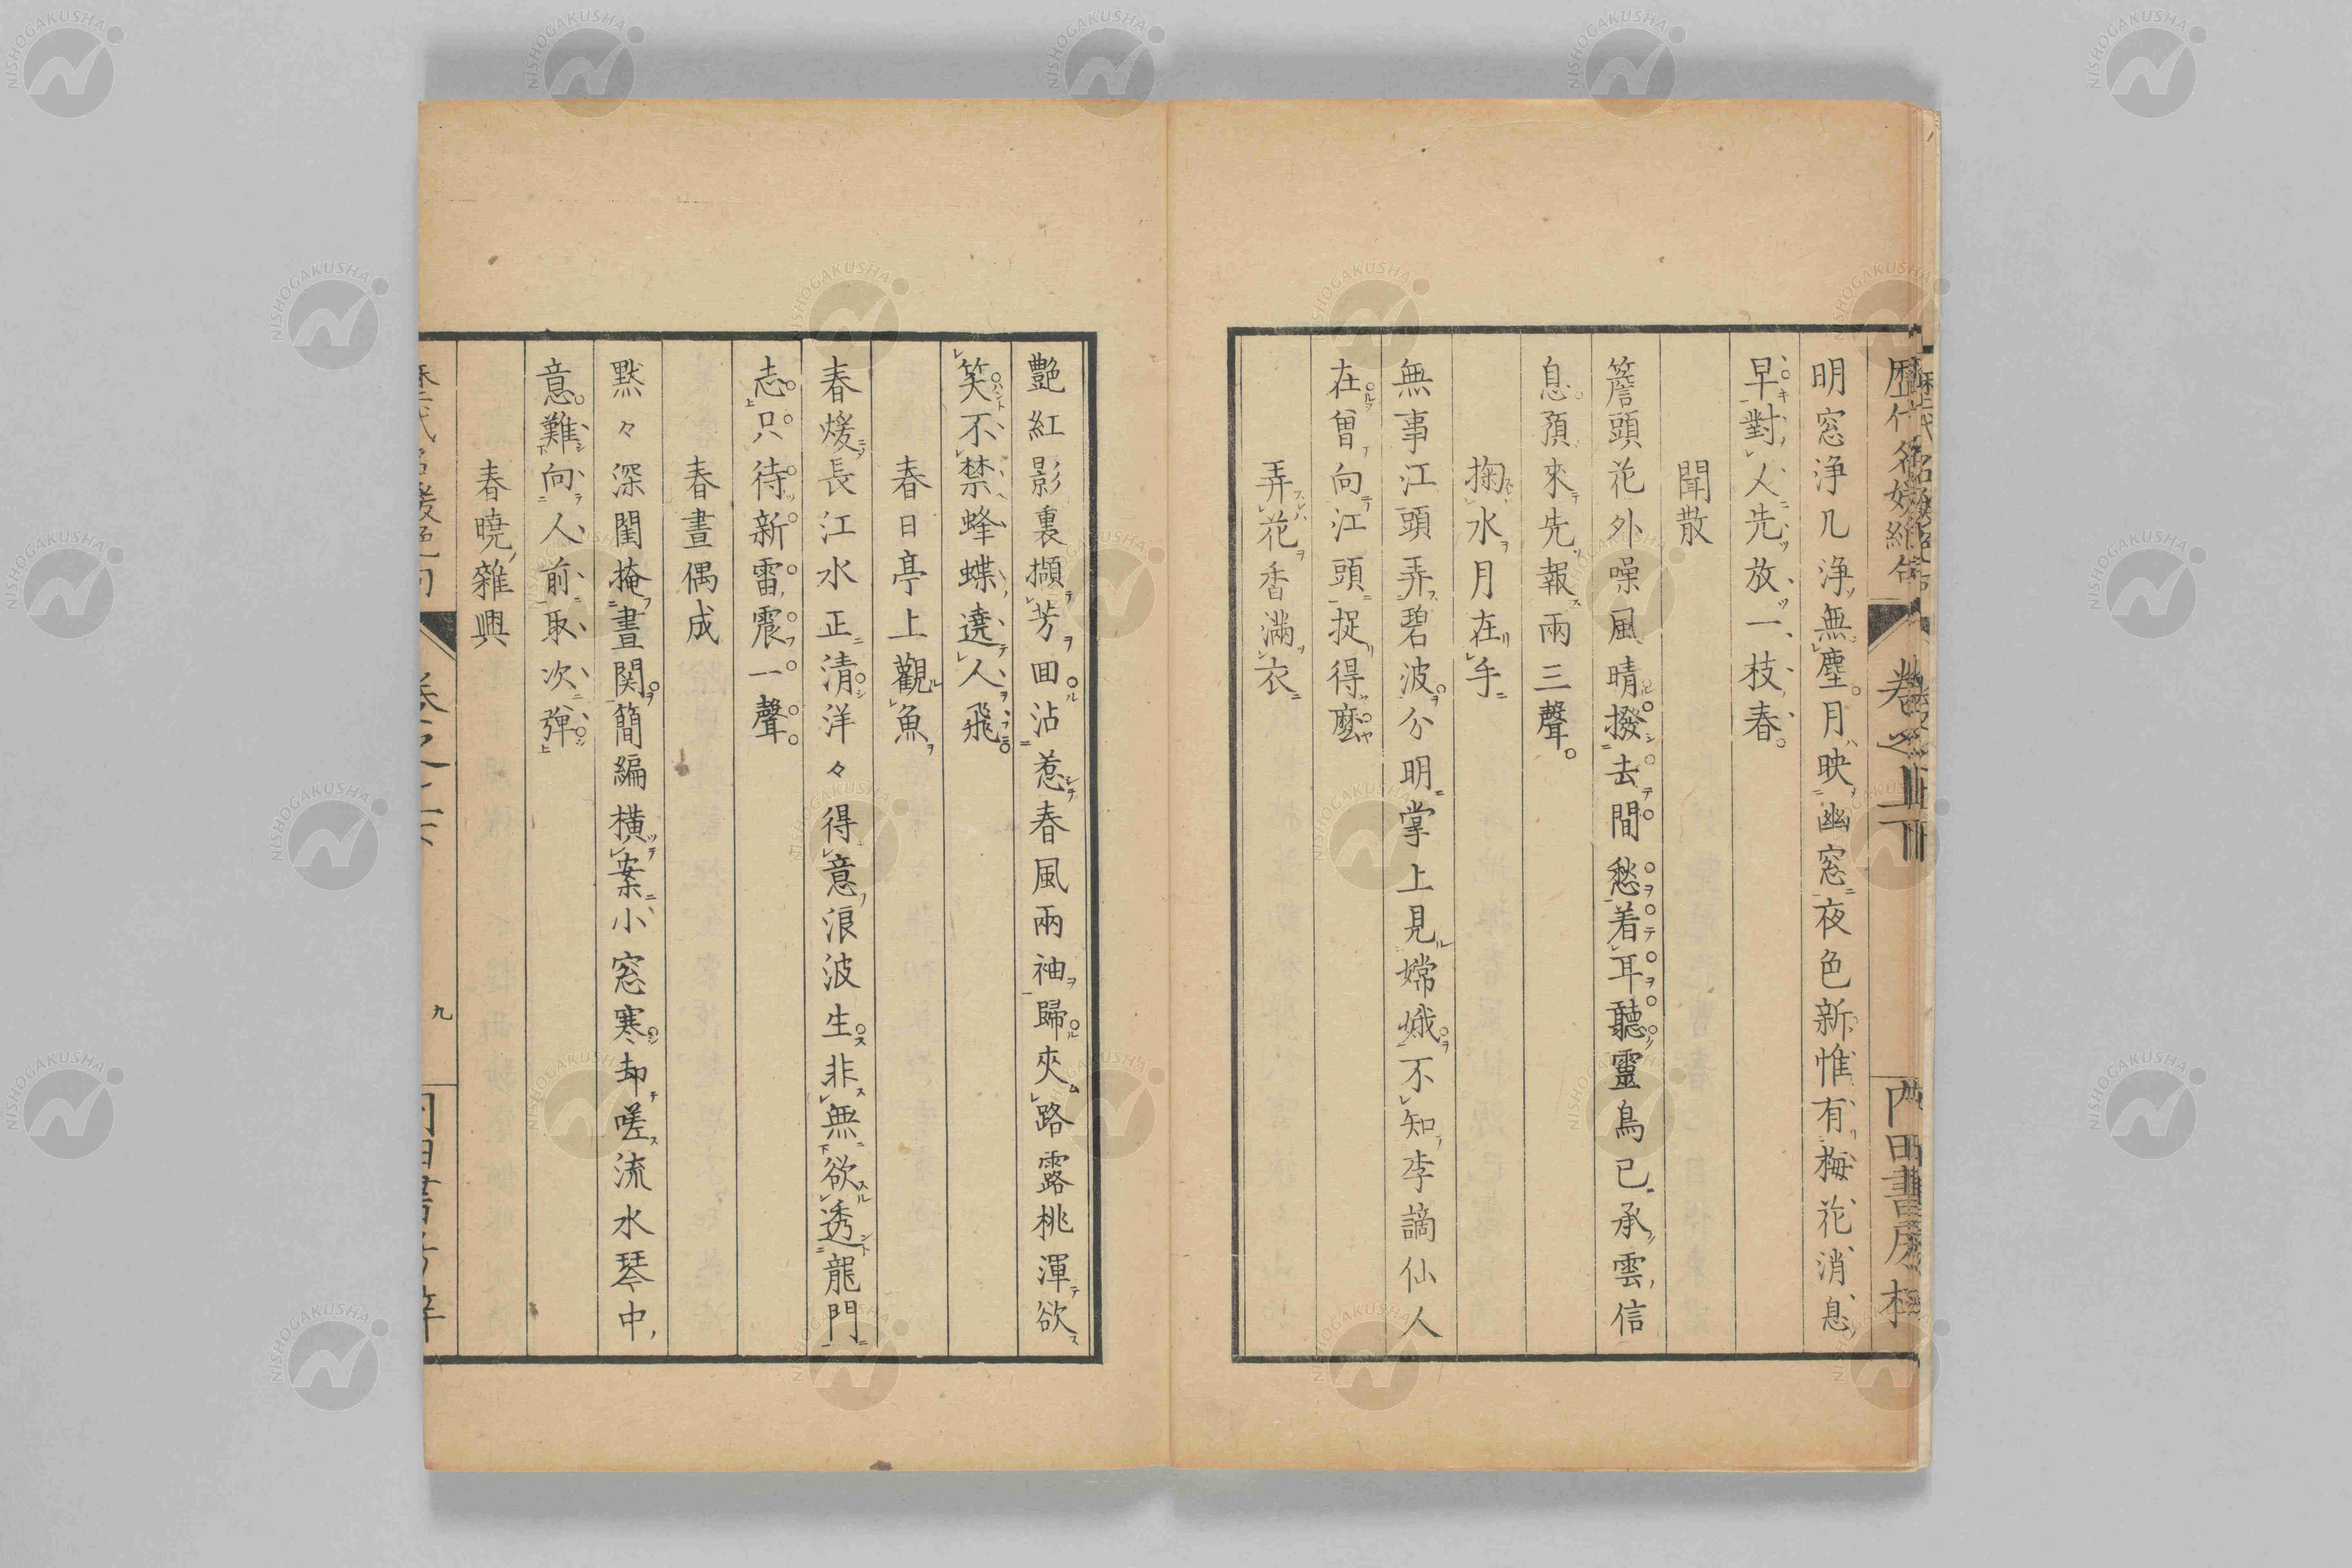 明窓浄几浄無塵月映幽窓夜色新惟有梅花消息
早對人先放一枝春
聞散
簷頭花外噪風晴撥去閒愁着耳聽靈鳥已承雲信
息預來先報兩三聲
掬水月在手
無事江頭弄碧波分明掌上見嫦娥不知李謫仙人
在曾向江頭捉得麼
弄花香滿衣
艷紅影裏擷芳回沾惹春風兩袖歸夾路露桃渾欲
笑不禁蜂蝶遶人飛
春日亭上觀魚
春煖長江水正清洋々得意浪波生非無欲透龍門
志只待新雷震一聲
春晝偶成
默々深閨掩晝関簡編横案小窓寒却嗟流水琴中
意難向人前取次弾
春曉雜興
九